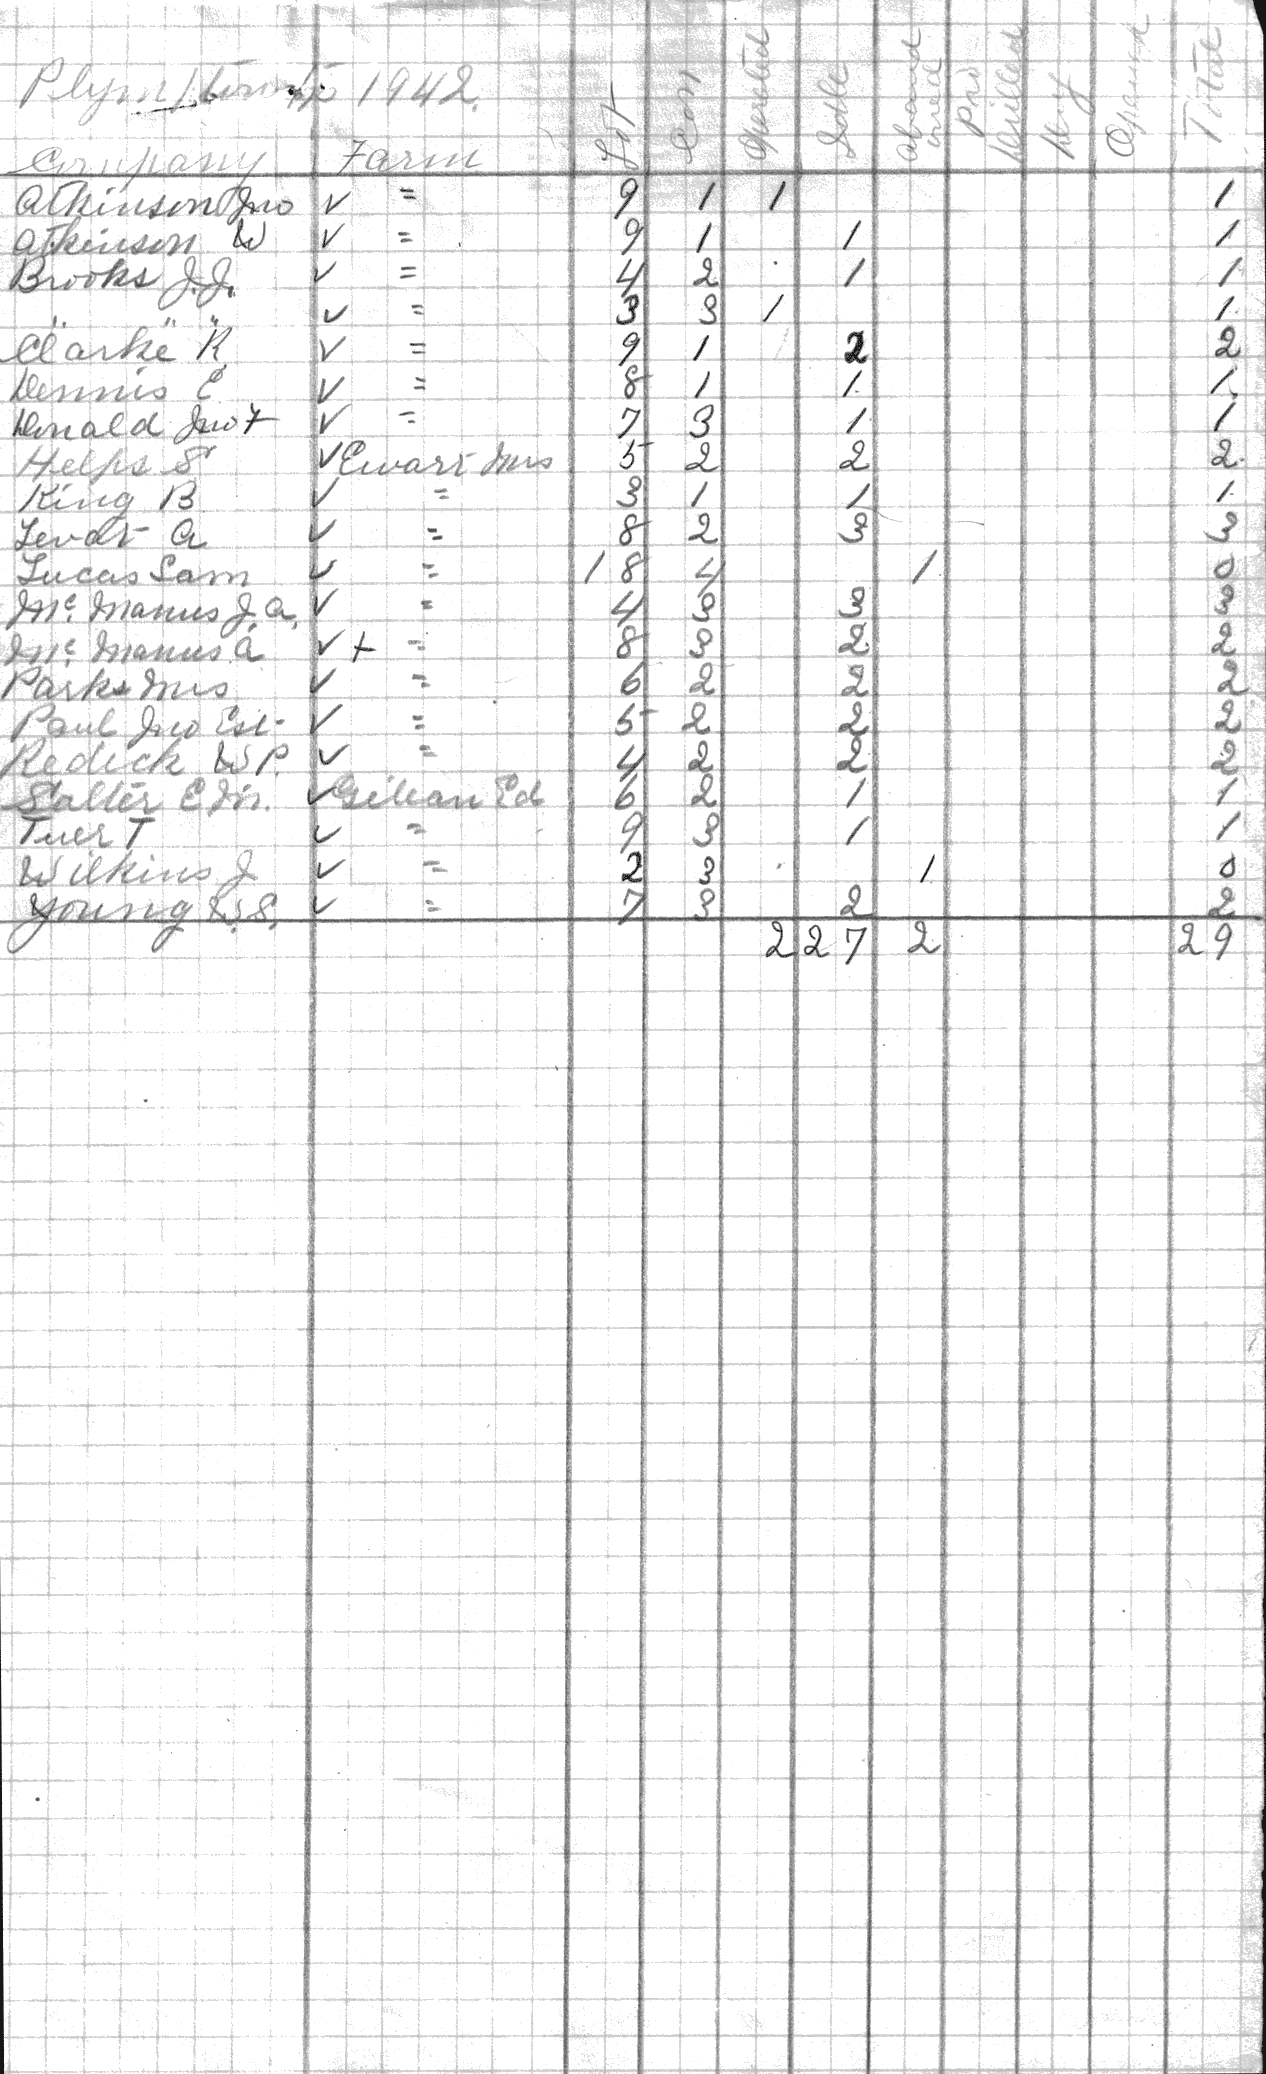 Plympton Tp 1942.
Company Farm Lot Con Operated Idle Aband oned Pro Drilled Dry Opened Total
Atkinson Jno ✓ = 9 1 1 1
Atkinson W ✓ = 9 1 1 1
Brooks J.J. ✓ = 4 2 1 1
" " " ✓ = 3 3 1 1
Clarke R ✓ = 9 1 2 2
Dennis E ✓ = 8 1 1 1
Donald Jno + ✓ = 7 3 1 1
Helps S ✓ Ewart Mrs 5 2 2 2
King B ✓ = 3 1 1 1
A ✓ = 8 2 3 3
Lucas Sam ✓ = 18 4 1 0
Mc. Manus J.A. ✓ = 4 3 3 3
Mc. Manus A ✓ + = 8 3 2 2
Parks Mrs ✓ = 6 2 2 2
Paul Jno Est- ✓ = 5 2 2 2
Redick W P. ✓ = 4 2 2 2
Salter E ✓ Ed 6 2 1 1
Tuer T ✓ = 9 3 1 1
Wilkins J ✓ = 2 3 1 0
Young W.S. ✓ = 7 3 2 2
2 27 2 29